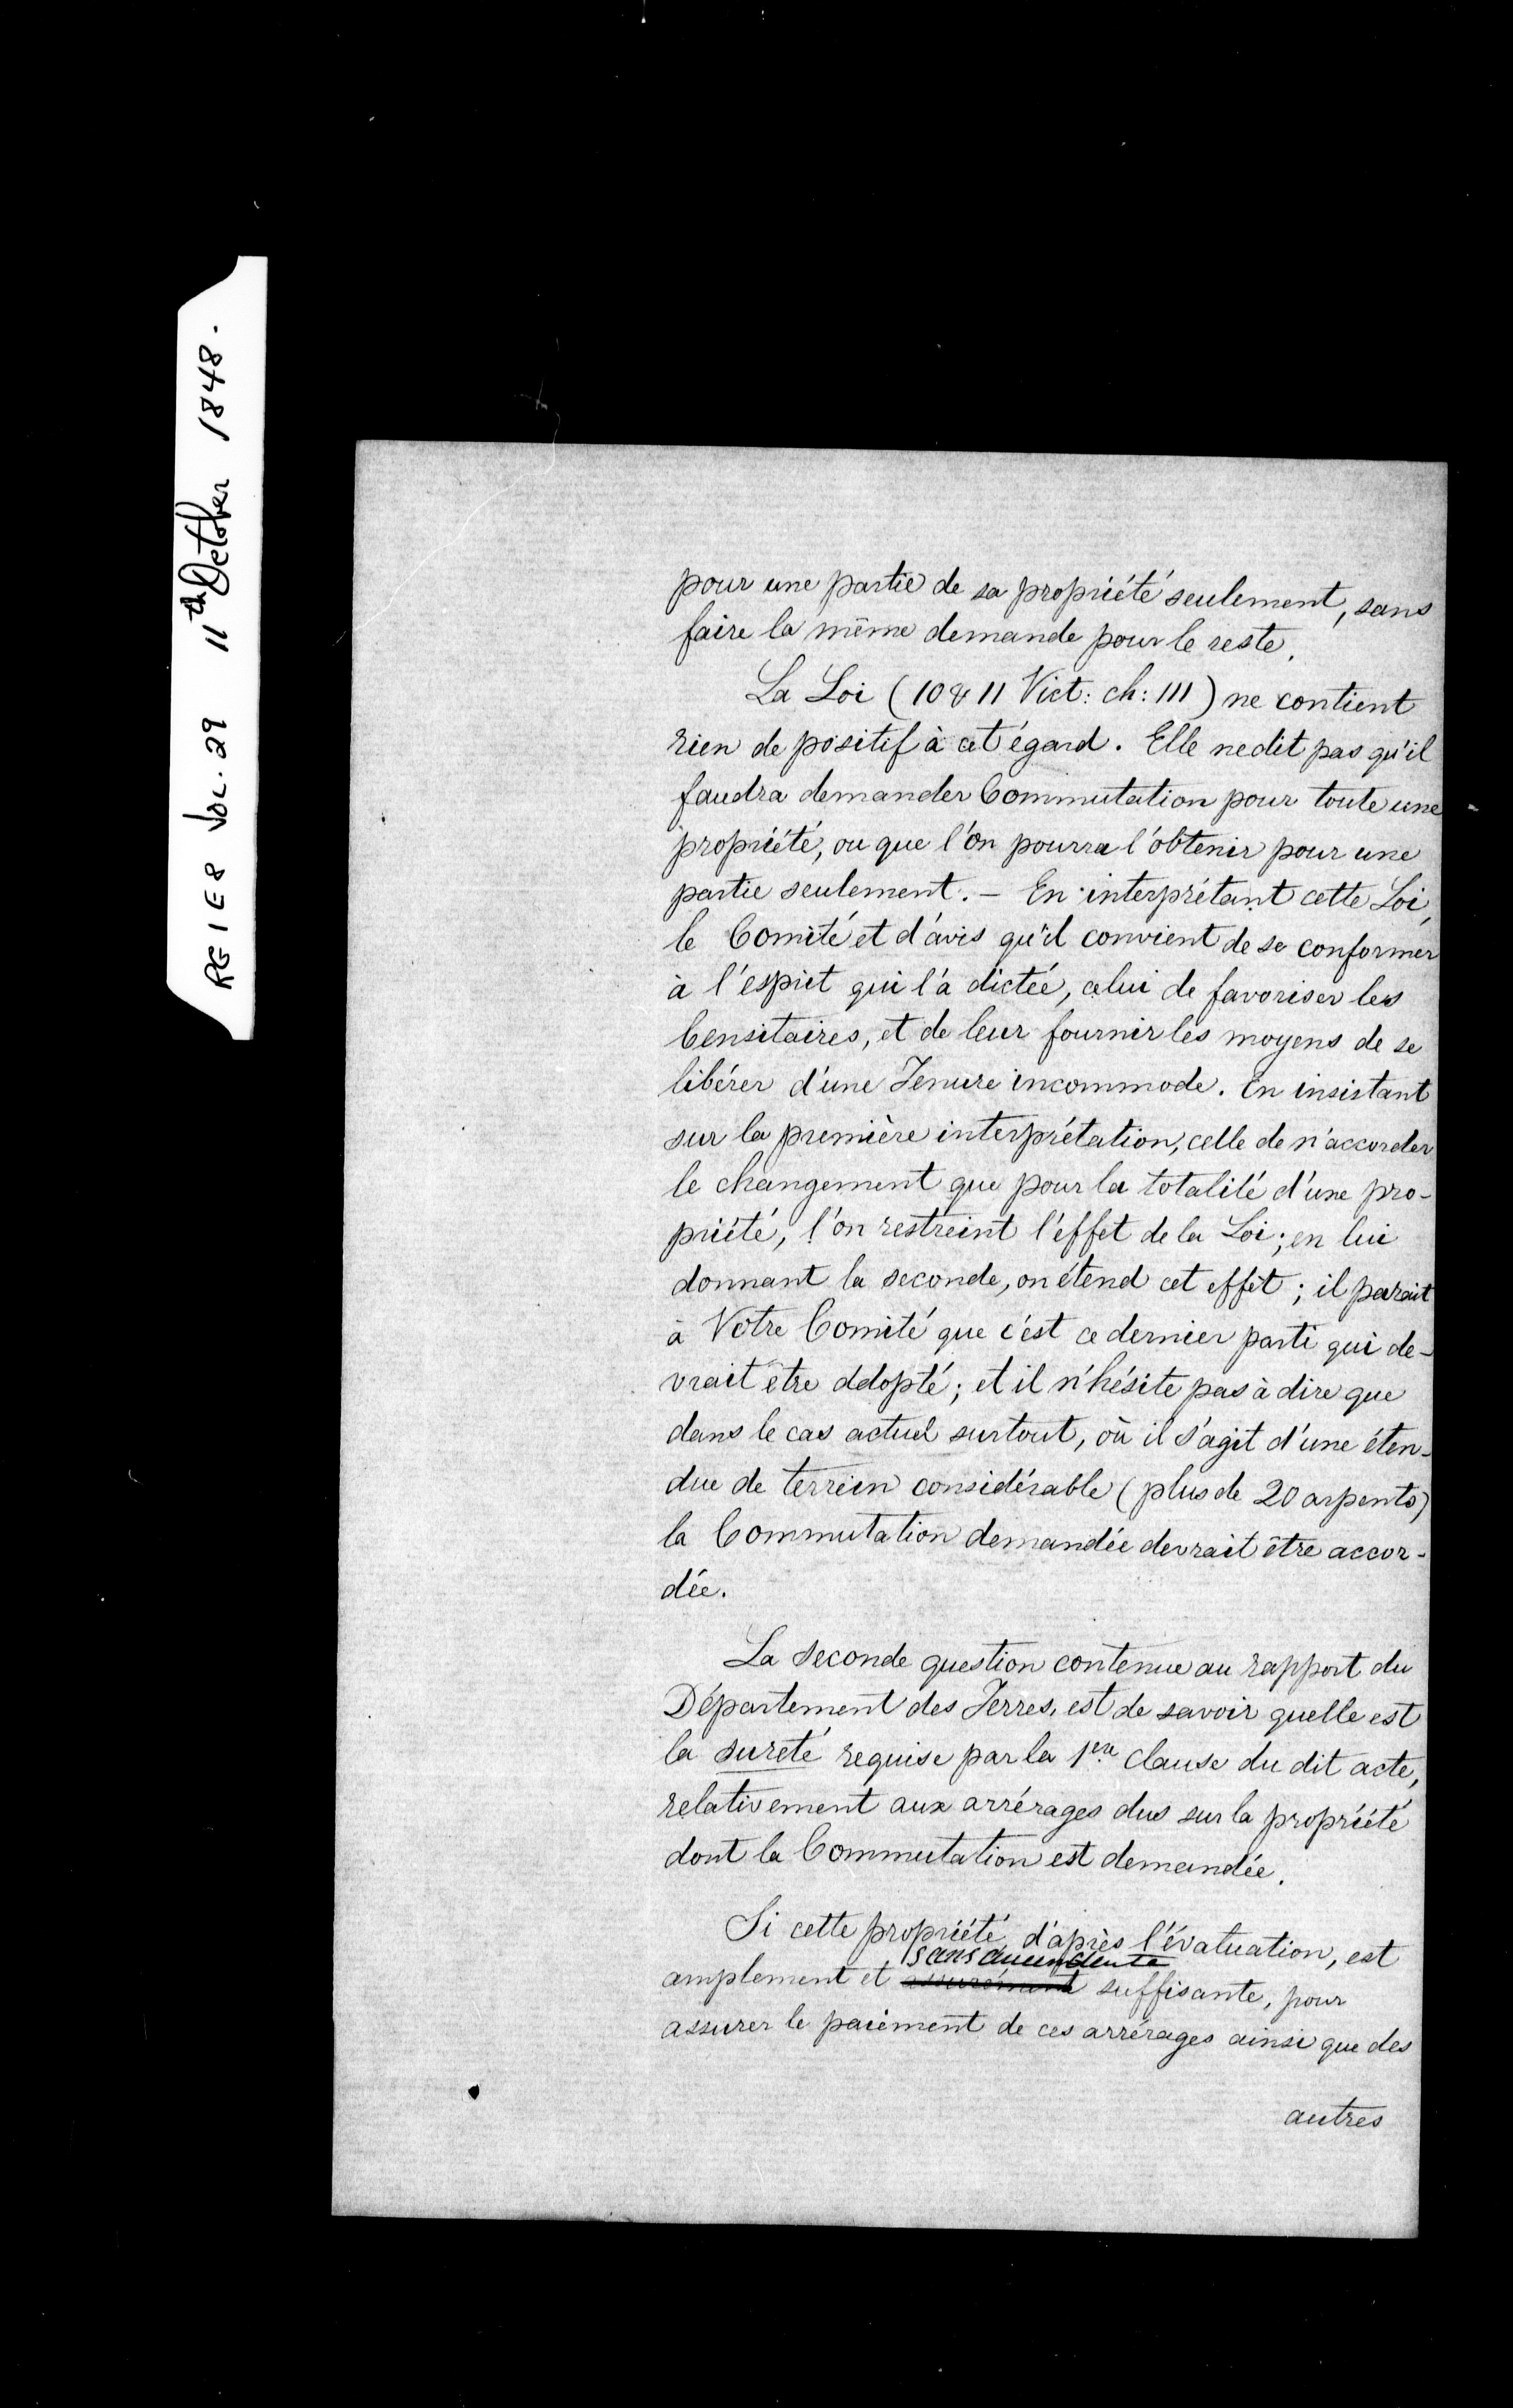 RG 1 E 8 Vol. 29 11th October 1848.
pour une partie de sa propriété seulement, sans
faire la même demande pour le reste.
La Loi (10 & 11 Vict: ch: 111) ne contient
rien de positif à cet égard. Elle ne dit pas qu'il
faudra demander Commutation pour toute une
propriété, ou que l'on pourra l'obtenir pour une
partie seulement. - En interprétant cette Loi,
le Comité et d'avis qu'il convient de se conformer
à l'espict qui l'a dictée, celui de favoriser les
Censitaires, et de leur fournir les moyens de se
libérer d'une Tenure incommode. En insistant
sur la première interprétation, celle de n'accorder
le changement que pour la totalité d'une pro-
priété, l'on restreint l'effet de la Loi; en lui
donnant la seconde, on étend cet effet; il parait
à Votre Comité que c'est ce dernier parti qui de-
vrait être adopté; et il n'hésite pas à dire que
dans le cas actuel surtout, où il s'agit d'une éten-
due de terrein considérable (plus de 20 arpents)
la Commutation demandée devrait être accor-
dée.
La seconde question contenue au rapport du
Département des Terres, est de savoir quelle est
la sureté requise par la 1ere clause du dit acte,
relativement aux arrérages dus sur la propriété
dont la Commutation est demandée.
Si cette propriété, d'après l'évaluation, est
sans aucun doute
amplement et assurément suffisante, pour
assurer le paiement de ces arrérages ainsi que des
autres